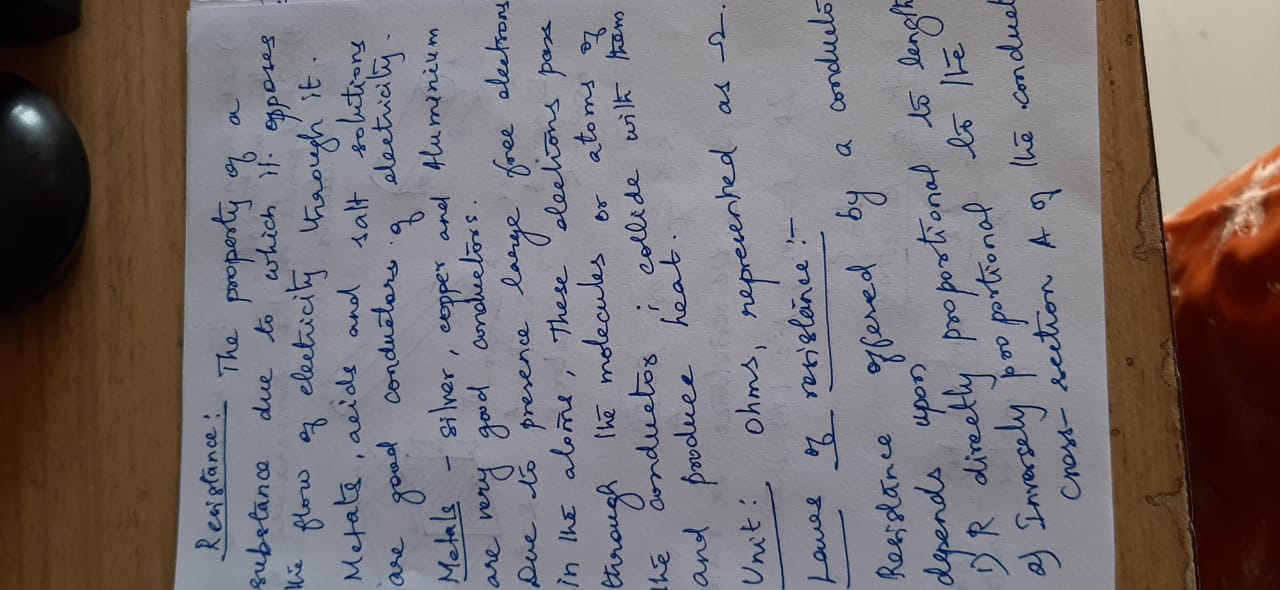 Resistance: The property of a
substance due to which it opposes
the flow of electricity through it.
Metals, acids and salt solutions
are good conductors of electricity.
Metals - silver, copper and Aluminium
are very good conductors.
Due to presence large free electrons
in the atoms, These electrons pass
through the molecules or atoms of
the conductor, collide with them
and produce heat.
Unit: Ohms, represented as Ω.
Lawes of resistance:-
Resistance offered by a conducto
depends upon
1) R directly proportional to length
2) Inversely proportional to the
cross-section A of the conduct